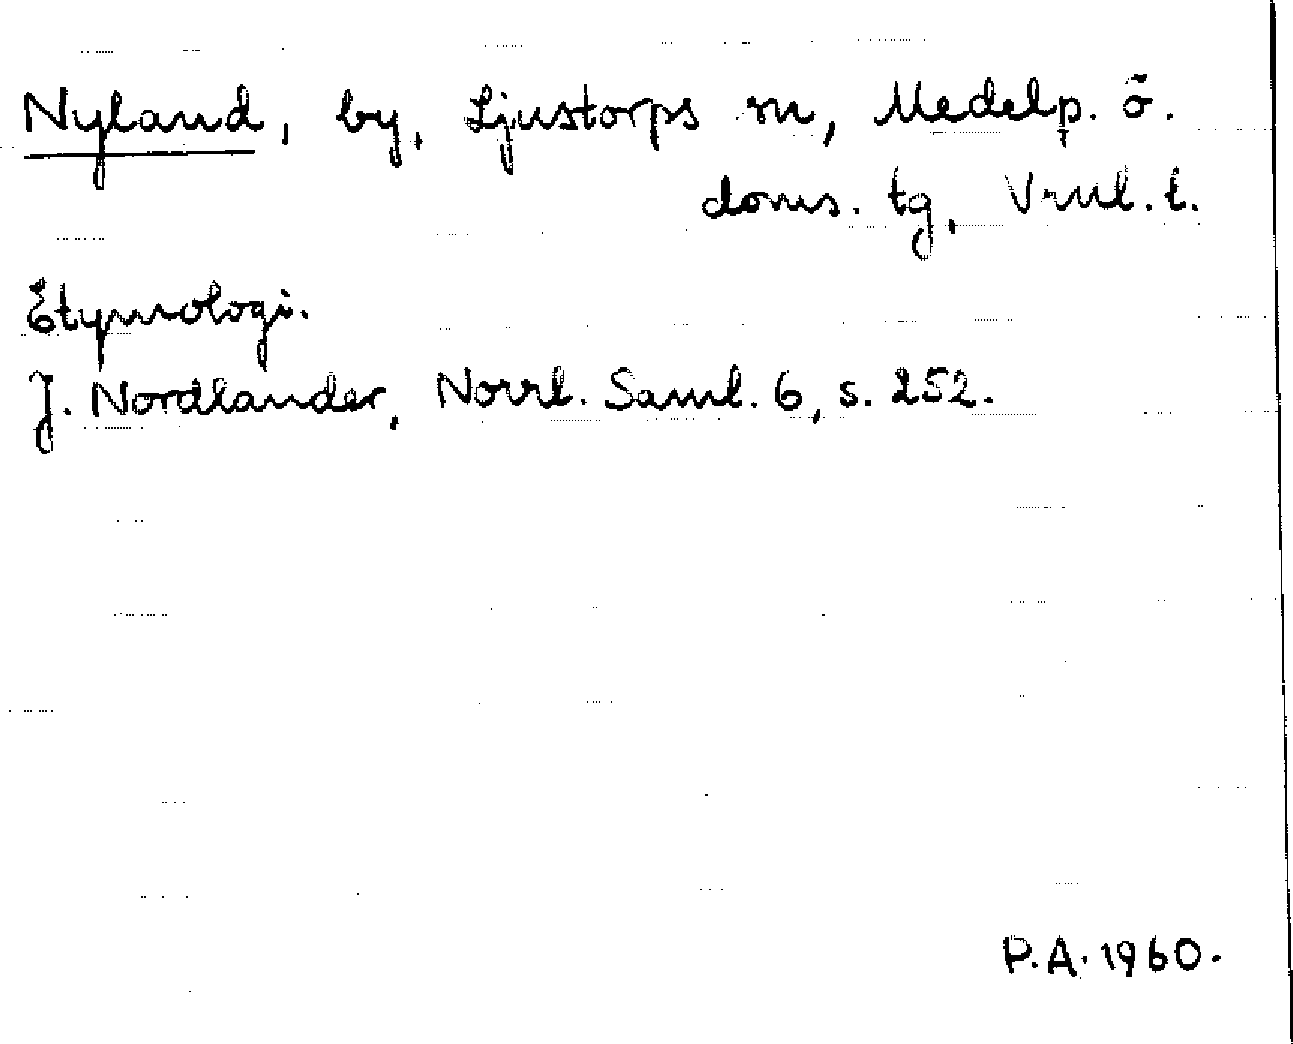 Nyland, by, Ljustorps sn, Medelp. ö.
doms. tg, Vrnl. l.
Etymologi.
J. Nordlander, Norrl. Saml. 6, s. 252.
P.A. 1960.